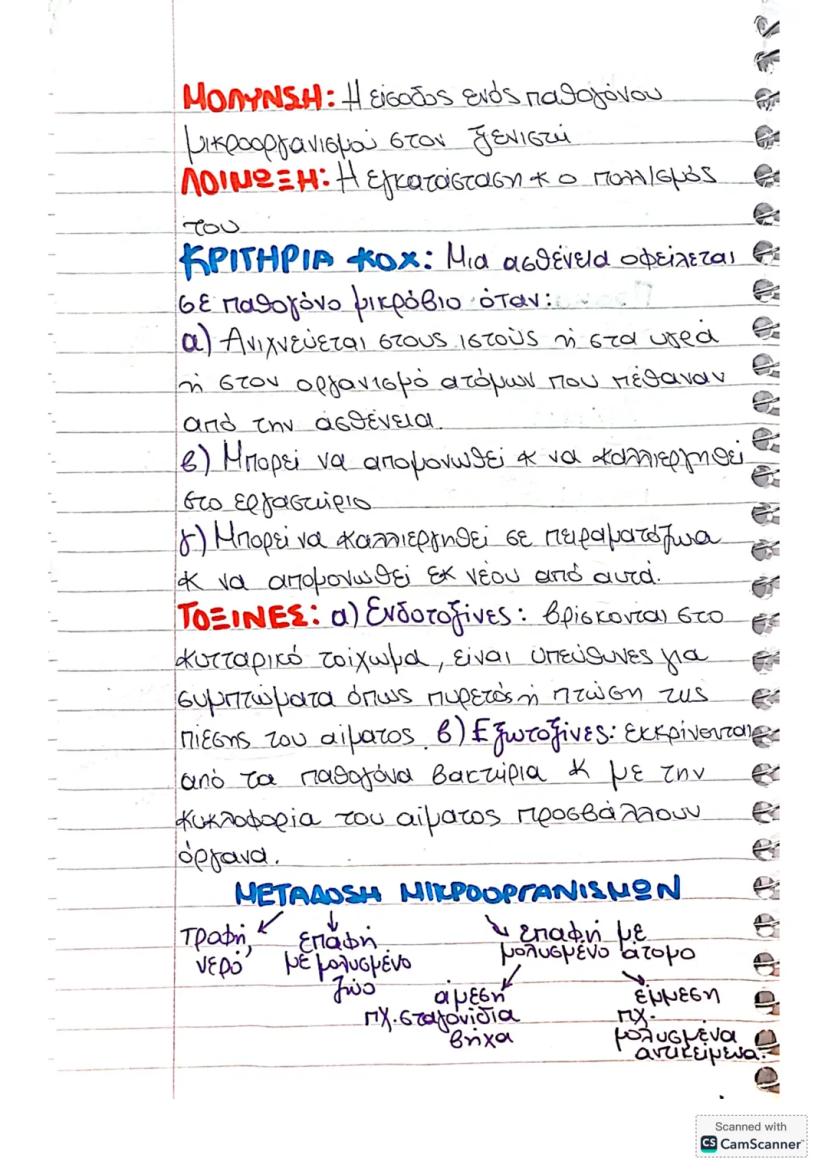 ΜΟΛΥΝΣΗ: Η είσοδος ενός παθογόνου
μικροοργανισμού στον ξενιστή
ΛΟΙΜΩΞΗ: Η εγκατάσταση κ ο πολ/σμός
του
ΚΡΙΤΗΡΙΑ ΚΟΧ: Μια ασθένεια οφείλεται
σε παθογόνο μικρόβιο όταν:
α) Ανιχνεύεται στους ιστούς ή στα υγρά
ή στον οργανισμό ατόμων που πέθαναν
από την ασθένεια.
β) Μπορεί να απομονωθεί κ να καλλιεργηθεί
στο εργαστήριο
γ) Μπορεί να καλλιεργηθεί σε πειραματόζωα
κ να απομονωθεί εκ νέου από αυτά.
ΤΟΞΙΝΕΣ: α) Ενδοτοξίνες: βρίσκονται στο
κυτταρικό τοίχωμα, είναι υπεύθυνες για
συμπτώματα όπως πυρετός ή πτώση της
πίεσης του αίματος. β) Εξωτοξίνες: εκκρίνονται
από τα παθογόνα βακτήρια κ με την
κυκλοφορία του αίματος προσβάλλουν
όργανα.
ΜΕΤΑΔΟΣΗ ΜΙΚΡΟΟΡΓΑΝΙΣΜΩΝ
τροφή, επαφή επαφή με
νερό με μολυσμένο μολυσμένο άτομο
ζώο άμεση έμμεση
πχ. σταγονίδια πχ.
βήχα μολυσμένα
αντικείμενα.
Scanned with
CS CamScanner